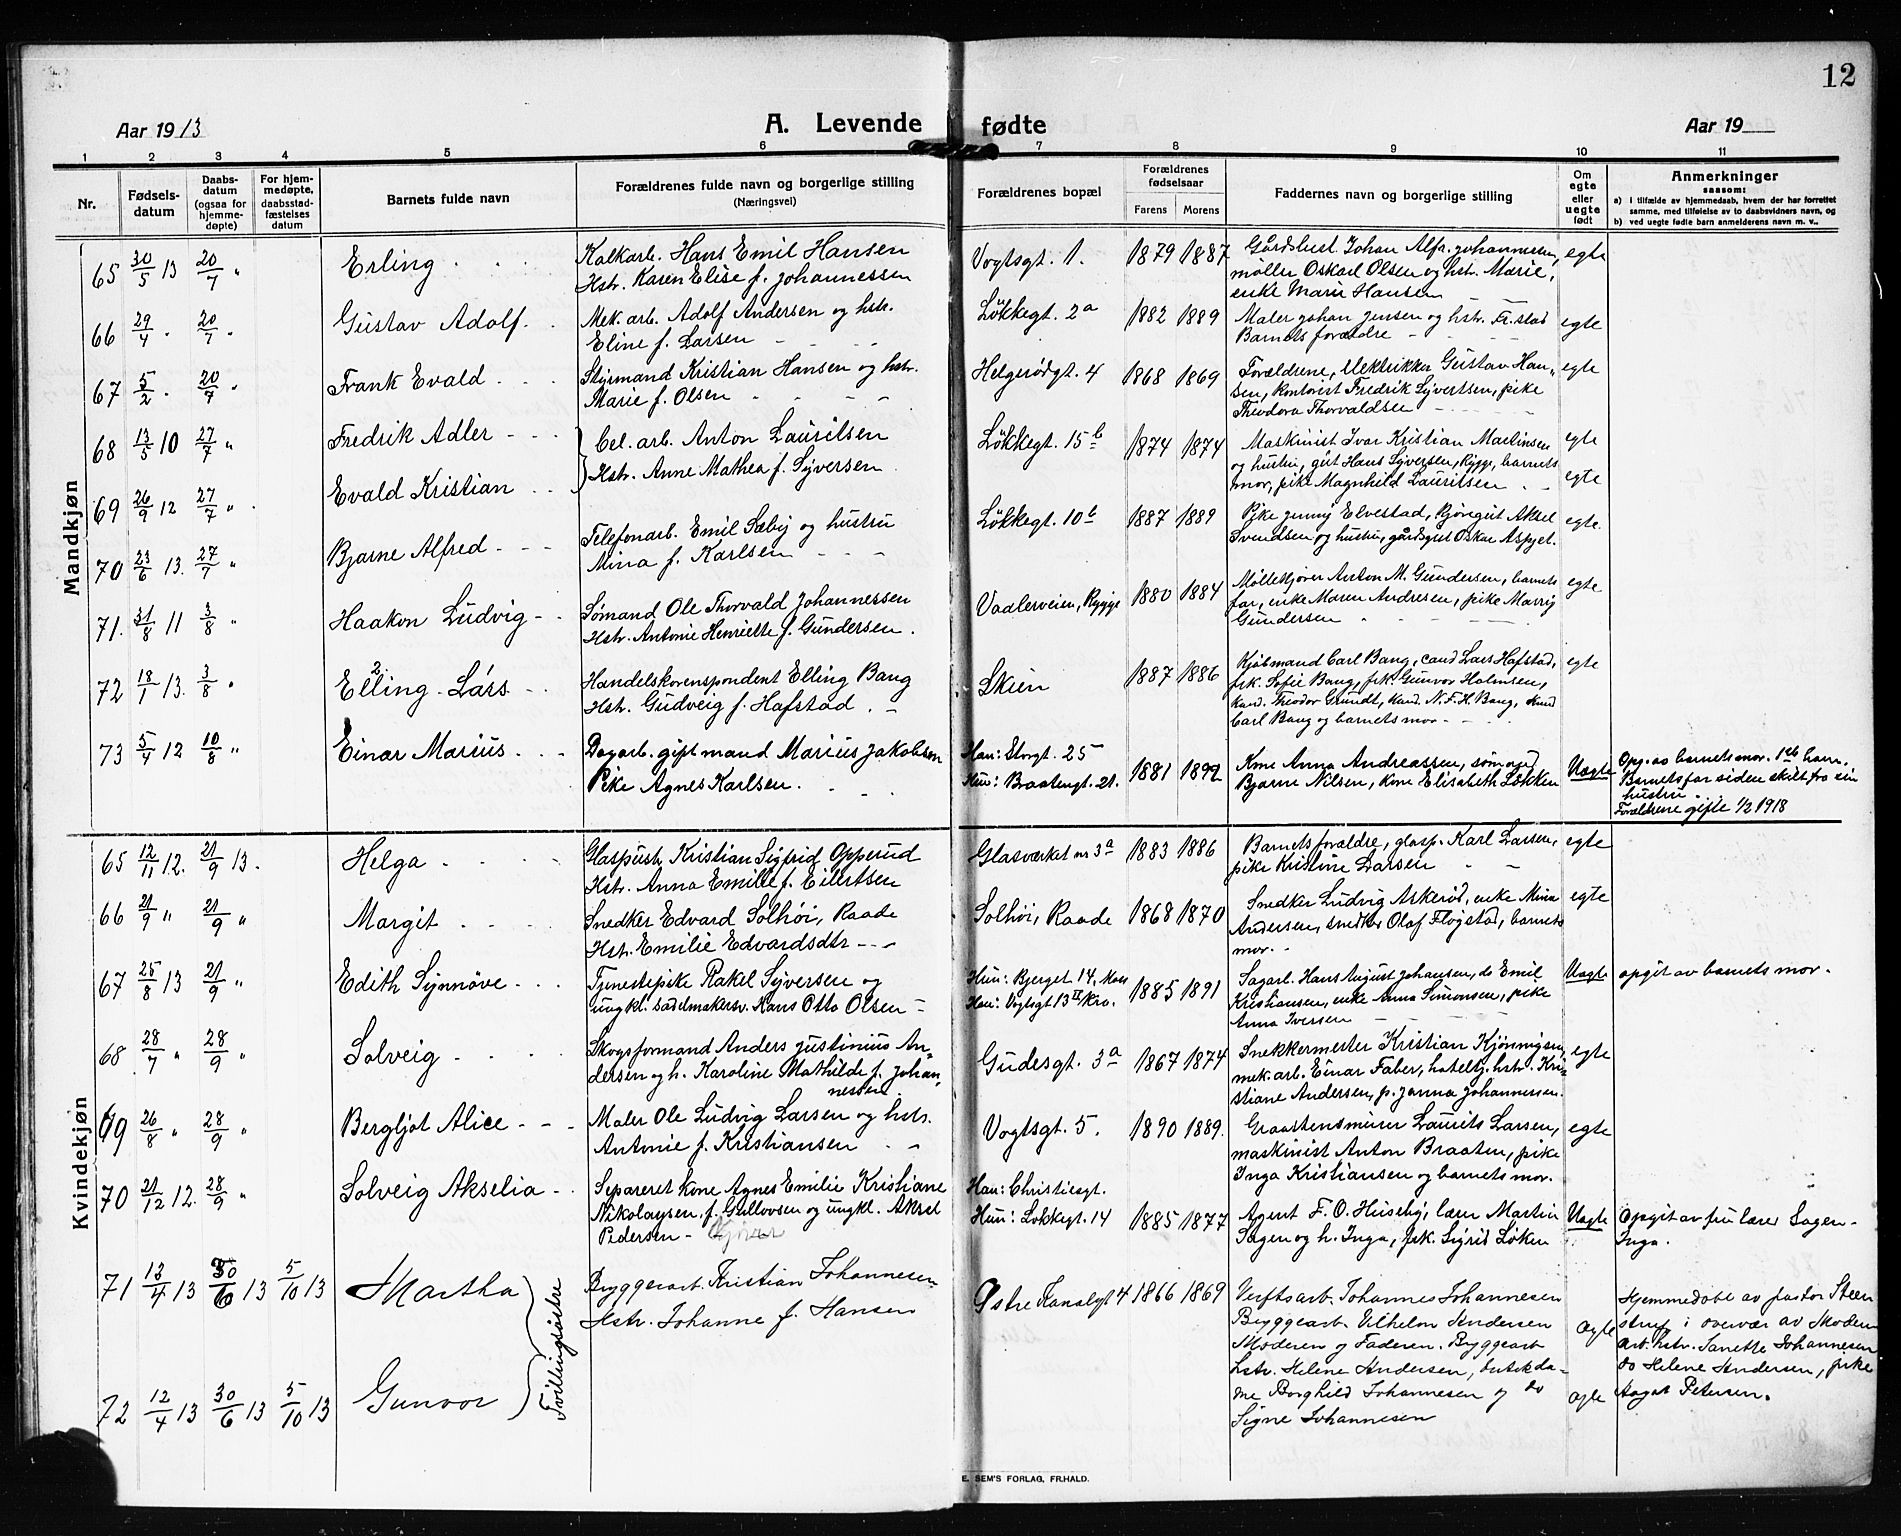 12
Aar 1913
A. Levende fødte
Aar 19
1 2 3 4 5 6 7 8 9 10 11
Nr.
Fødsels-
datum
Daabs-
datum
(ogsaa for
hjemme-
døpte)
For hjem-
medøpte,
daabsstad-
fæstelses
datum
Barnets fulde navn
Forældrenes fulde navn og borgerlige stilling
(Næringsvei)
Forældrenes bopæl
Forældrenes
fødselsaar
Farens Morens
Faddernes navn og borgerlige stilling
Om
egte
eller
uegte
født
Anmerkninger
saasom:
a) i tilfælde av hjemmedaab, hvem der har forrettet
samme, med tilføielse av to daabsvidners navn, og
b) ved uegte fødte barn anmelderens navn m. v.,
Mandkjøn
65 30/5 13 20/7 "
Erling
Kalkarb. Hans Emil Hansen
Hstr. Karen Elise f. Johannessen
Vogtsgt. 1.
1879 1887
Gårdsbest. Johan Alfr. Johannessen,
møller Oskarl Olsen og hstr. Marie,
enke Marie Hansen
egte
66 29/4 . 20/7 "
Gustav Adolf.
Mek. arb. Adolf Andersen og hstr.
Eline f. Larsen
Løkkegt. 2a
1882 1889
Maler Johan Jensen og hstr. Fr.stad
Barnets forældre
egte
67 5/2 . 20/7 "
Frank Evald
Styrmand Kristian Hansen og hstr.
Marie f. Olsen
Helgerødgt. 4
1868 1869
Forældrene, elektrikker Gustav Han-
sen, kontorist Fredrik Syvertsen, pike
Theodora Thorvaldsen
egte
68 13/5 10 27/7 "
Fredrik Adler
Cel. arb. Anton Lauritsen
Hstr. Anne Mathea f. Syversen
Løkkegt. 15b
1874 1874
Maskinist Ivar Kristian Martinsen
og hustru, gut Hans Syversen, Rygge, barnets
mor, pike Magnhild Lauritsen
egte
69 26/9 12 27/7 "
Evald Kristian
egte
70 23/6 13. 27/7 "
Bjarne Alfred
Telefonarb. Emil Sæby og hustru
Mina f. Karlsen
Løkkegt. 10b
1887 1889
Pike Jenny Elvestad, Kjøregut Aksel
Svendsen og hustru, gårdsgut Oskar Aspjet.
egte.
71. 31/8 11 3/8 "
Haakon Ludvig
Sømand Ole Thorvald Johannessen
Hstr. Antonie Henriette f. Gundersen.
Vaalerveien, Rygge
1880 1884
Møllekjører Anton M. Gundersen, barnets
far, enke Maren Andresen, pike Marry
Gundersen
egte
72 18/1 13. 3/8 "
Elling Lars
Handelskorrespondent Elling Bang
Hstr. Gudveig f. Hafstad.
Skien
1887 1886
Kjøbmand Carl Bang, cand Lars Hafstad,
frk. Sofie Bang, frk. Gunvor Halmsen,
kand. Theodor Grundt, kand. N. F. H. Bang, kand
Carl Bang og barnets mor
egte
73 5/4 12 10/8 "
Einar Marius
Dagarb. gift mand Marius Jakobsen
Pike Agnes Karlsen.
Han: Storgt. 25
Hun: Braatengt. 21.
1881 1892
Kone Anna Andreassen, sømand
Bjarne Nilsen, kone Elisabeth Løkken
Uegte
Opg. av barnets mor. 1ste barn.
Barnets far siden skilt fra sin
hustru.
Forældrene gifte 1/2 1918
Kvindekjøn
65 12/11 12. 21/9 13.
Helga
Glaspust. Kristian Sigfrid Opperud
Hstr. Anna Emilie f. Eilertsen
Glasværket nr 3a
1883 1886
Barnets forældre, glasp. Karl Larsen,
pike Kristine Larsen
egte
66 21/9 " 21/9 "
Margit
Snedker Edvard Solhøi, Raade
Hstr. Emilie Edvardsdtr
Solhøi, Raade
1868 1870
Snedker Ludvig Askerød, enke Mina
Andersen, snedker Olaf Fløgstad, barnets
mor.
egte
67 25/8 13 21/9 "
Edith Synnøve
Tjenestepike Rakel Syversen og
ungk. sadelmakersv. Hans Otto Olsen
Hun: Bjerget 14, Moss
Han: Vogtsgt 13 II Kra.
1885 1891
Sagarb. Hans August Johansen, do Emil
Kristiansen, enke Anna Simonsen, pike
Anna Iversen
Uegte
opgit av barnets mor.
68 28/7 " 28/9 "
Solveig
Skogsformand Anders Justinius An-
dersen og h. Karoline Mathilde f. Johan-
nessen
Gudesgt. 3a
1867 1874
Snekkermester Kristian Kjønnigsen,
mek. arb. Einar Faber, hotelbj. hstr. Kri-
stiane Andersen, p. Janna Johannessen.
egte
69 26/8 " 28/9 "
Bergljot Alice
Maler Ole Ludvig Larsen og hstr.
Antonie f. Kristiansen
Vogtsgt. 5.
1890 1889.
Graastensmurer Laurits Larsen,
maskinist Anton Braaten, pike
Inga Kristiansen og barnets mor.
egte
70 21/12 12. 28/9 "
Solveig Akselia
Separeret kone Agnes Emilie Kristiane
Nikolaysen, f. Gullovsen og ungk. Aksel
Pedersen
Han: Christiesgt.
Hun: Løkkegt. 14
1885 1877
Agent F. O. Huseby, lærer Martin
Sagen og h. Inga, frk. Sigrid Løken
Uegte
Opgit av fru lærer Sagen
Inga.
71 12/4 13 30/6 13 5/10 13
Martha
Tvillingsøstre
Bryggerarb. Kristian Johannesen
Hstr. Johanne f. Hansen
Østre Kanalgt 4
1866 1869
Verftsarb. Johannes Johannesen
Bryggearb. Vilhelm Andersen
Moderen og Faderen. Bryggearb
hstr. Helene Andersen, butikda-
me Borghild Johannesen og do
Signe Johannesen
egte
Hjemmedøbt av pastor Steen
strup i overvær av Moderen
arb. hstr. Janette Johannesen
do Helene Andersen, pike
Aagot Petersen.
72 12/4 13 30/6 13 5/10 13
Gunvor
egte
E. SEM'S FORLAG, FR.HALD.